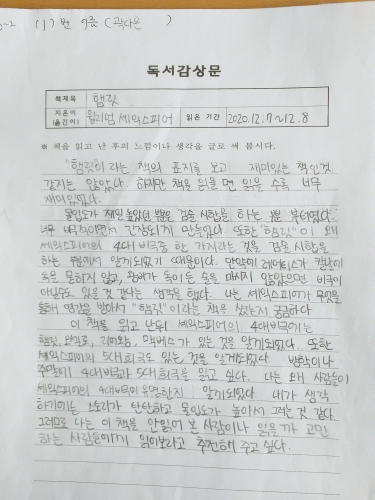 (1)번 이름 (곽다은 )
독서감상문
책제목 햄릿
지은이 (옮긴이) 윌리엄 셰익스피어 읽은 기간 2020.12.7~12.8
※ 책을 읽고 난 후의 느낌이나 생각을 글로 써 봅시다.
"햄릿"이라는 책의 표지를 보고 재미있는 책인것
같지는 않았다. 하지만 책을 읽을 면 읽을 수록 너무
재미있었다.
몰입도가 제일 높았던 부분은 검술 시합을 하는 부분 부터였다.
너무 매력적이면서 긴장되게 만들었다. 또한 "햄릿"이 왜
셰익스피어의 4대 비극중 한 가지라는 것을 검술 시합을
하는 부분에서 알게되었기 때문이다. 만약에 레어티스가 칼날에
독을 묻히지 않고, 왕비가 독이 든 술을 마시지 않았으면 비극이
아닐수도 있을 것 같다는 생각을 했다. 나는 셰익스피어가 무엇을
통해 영감을 받아서 "햄릿"이라는 책을 썼는지 궁금하다
이 책을 읽고 난뒤 셰익스피어의 4대비극에는
햄릿, 오셀로, 리어왕, 맥베스가 있는 것을 알게되었다. 또한
셰익스피어의 5대 희극도 있는 것을 알게되었다. 방학이나
주말에 4대비극과 5대 희극을 읽고 싶다. 나는 왜 사람들이
셰익스피어의 4대비극이 유명한지 알게되었다. 내가 생각
하기에는 스토리가 탄탄하고 몰입도가 높아서 그러는 것 같다.
그러므로 나는 이 책을 안읽어 본 사람이나 읽을까 고민
하는 사람들에게 읽어보라고 추천해 주고 싶다.